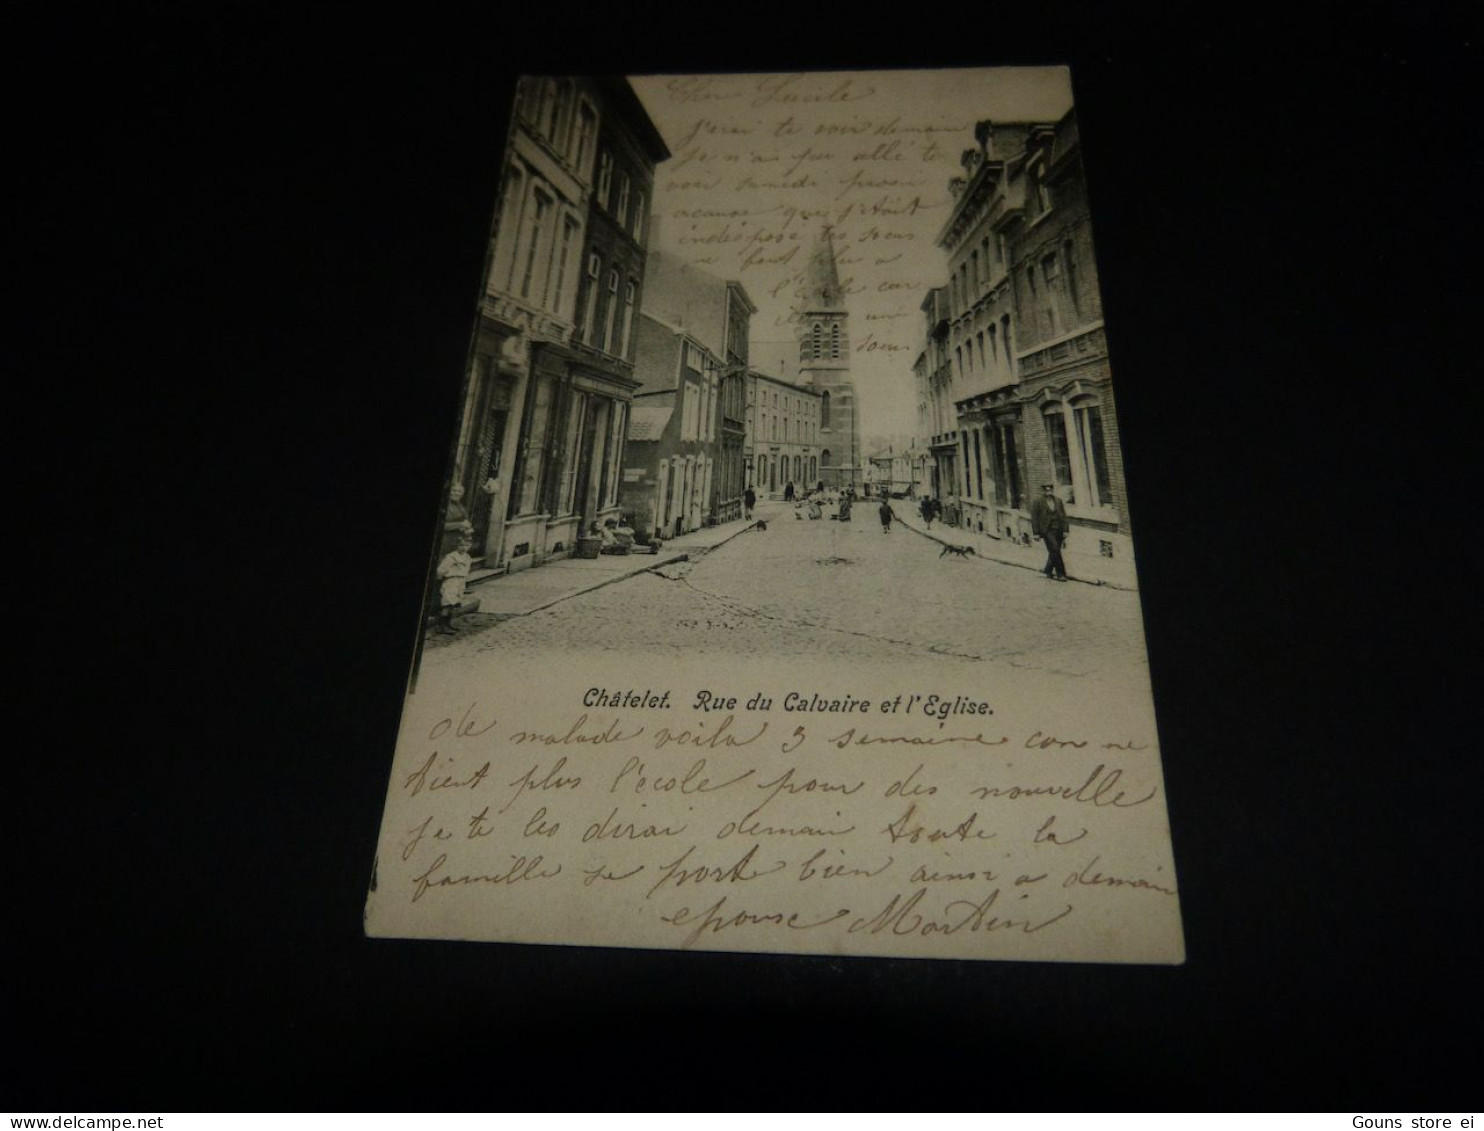 Cher Lucile
j'irai te voir demain
je n'ai pu allé te
voir samedi
acause que j'etait
indéspose les soeus
ne font plu a
l'école car
une
soeur
Châtelet. Rue du Calvaire et l'Eglise.
de malade voila 3 semaine con ne
tient plus l'école pour des nouvelle
je te les dirai demain toute la
famille se porte bien ainsi a demain
epouse Martin
delcampe.net
Gouns store ei